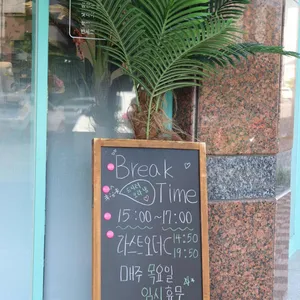 Break
Time
15:00~17:00
라스트오더 14:50
19:50
매주 목요일
임시휴무